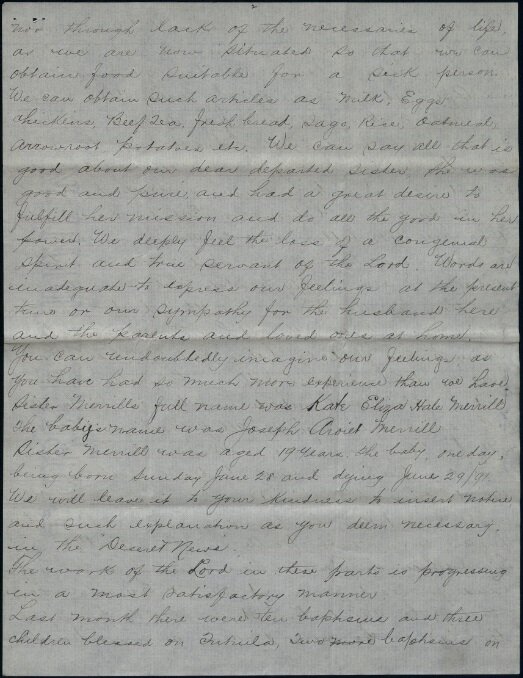 nor through lack of the necessaries of life,
as we are now situated so that we can
obtain food suitable for a sick person.
We can obtain such articles as Milk, Eggs
Chickens, Beef Tea, fresh bread, Sago, Rice, Oatmeal,
Arrowroot Potatoes etc. We can say all that is
good about our dear departed sister She was
good and pure and had a great desire to
fulfill her mission and do all the good in her
power. We deeply feel the loss of a congenial
spirit and true servant of the Lord. Words are
inadequate to express our feelings at the present
time or our sympathy for the husband here
and the parents and loved ones at home.
You can undoubtedly imagine our feelings as
you have had so much more experience than we have.
Sister Merrills full name was Kate Eliza Hale Merrill
The baby's name was Joseph Merrill
Sister Merrill was aged 19 years the baby one day,
being born Sunday June 28 and dying June 29/91
We will leave it to your kindness to insert notice
and such explanation as you deem necessary.
in the "Deseret News".
The work of the Lord in these parts is progressing
in a most satisfactory manner
Last month there were ten baptisms and three
children blessed on Tutuila, Two more baptisms on